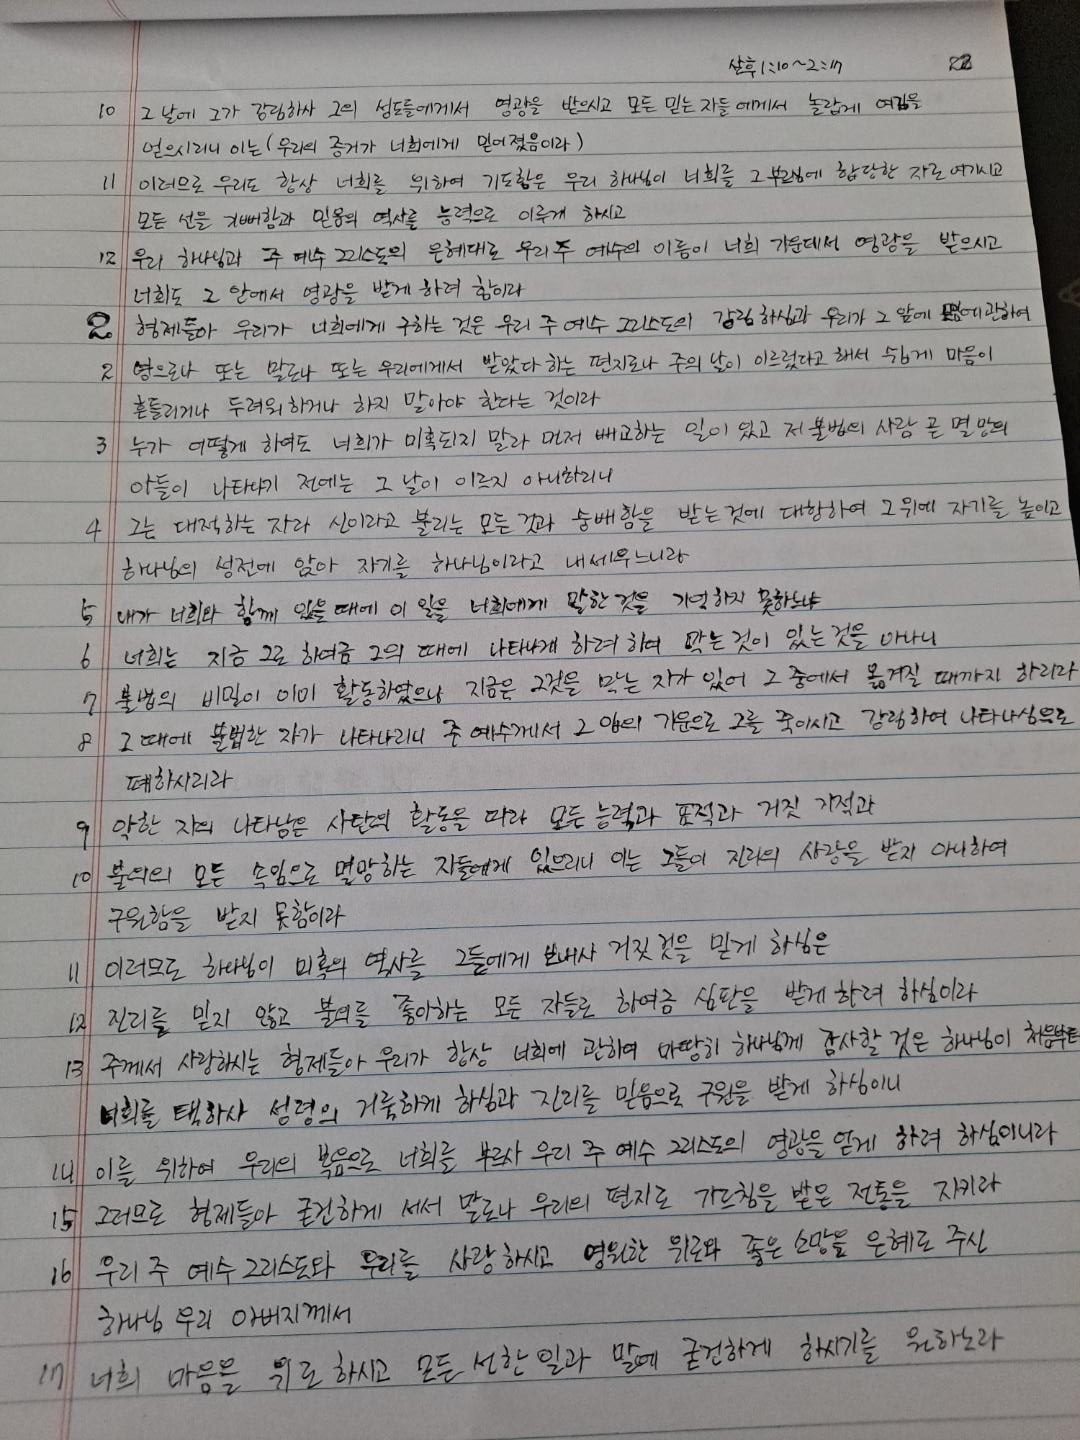 살후 1:10~2:17
10 그 날에 그가 강림하사 그의 성도들에게서 영광을 받으시고 모든 믿는 자들에게서 놀랍게 여김을
얻으시리니 이는 (우리의 증거가 너희에게 믿어졌음이라)
11 이러므로 우리도 항상 너희를 위하여 기도함은 우리 하나님이 너희를 그 부르심에 합당한 자로 여기시고
모든 선을 기뻐함과 믿음의 역사를 능력으로 이루게 하시고
12 우리 하나님과 주 예수 그리스도의 은혜대로 우리 주 예수의 이름이 너희 가운데서 영광을 받으시고
너희도 그 안에서 영광을 받게 하려 함이라
2 형제들아 우리가 너희에게 구하는 것은 우리 주 예수 그리스도의 강림하심과 우리가 그 앞에 모임에 관하여
2 영으로나 또는 말로나 또는 우리에게서 받았다 하는 편지로나 주의 날이 이르렀다고 해서 쉽게 마음이
흔들리거나 두려워하거나 하지 말아야 한다는 것이라
3 누가 어떻게 하여도 너희가 미혹되지 말라 먼저 배교하는 일이 있고 저 불법의 사람 곧 멸망의
아들이 나타나기 전에는 그 날이 이르지 아니하리니
4 그는 대적하는 자라 신이라고 불리는 모든 것과 숭배함을 받는 것에 대항하여 그 위에 자기를 높이고
하나님의 성전에 앉아 자기를 하나님이라고 내세우느니라
5 내가 너희와 함께 있을 때에 이 일을 너희에게 말한 것을 기억하지 못하느냐
6 너희는 지금 그로 하여금 그의 때에 나타나게 하려 하여 막는 것이 있는 것을 아나니
7 불법의 비밀이 이미 활동하였으나 지금은 그것을 막는 자가 있어 그 중에서 옮겨질 때까지 하리라
8 그 때에 불법한 자가 나타나리니 주 예수께서 그 입의 기운으로 그를 죽이시고 강림하여 나타나심으로
폐하시리라
9 악한 자의 나타남은 사탄의 활동을 따라 모든 능력과 표적과 거짓 기적과
10 불의의 모든 속임으로 멸망하는 자들에게 있으리니 이는 그들이 진리의 사랑을 받지 아니하여
구원함을 받지 못함이라
11 이러므로 하나님이 미혹의 역사를 그들에게 보내사 거짓 것을 믿게 하심은
12 진리를 믿지 않고 불의를 좋아하는 모든 자들로 하여금 심판을 받게 하려 하심이라
13 주께서 사랑하시는 형제들아 우리가 항상 너희에 관하여 마땅히 하나님께 감사할 것은 하나님이 처음부터
너희를 택하사 성령의 거룩하게 하심과 진리를 믿음으로 구원을 받게 하심이니
14 이를 위하여 우리의 복음으로 너희를 부르사 우리 주 예수 그리스도의 영광을 얻게 하려 하심이니라
15 그러므로 형제들아 굳건하게 서서 말로나 우리의 편지로 가르침을 받은 전통을 지키라
16 우리 주 예수 그리스도와 우리를 사랑하시고 영원한 위로와 좋은 소망을 은혜로 주신
하나님 우리 아버지께서
17 너희 마음을 위로하시고 모든 선한 일과 말에 굳건하게 하시기를 원하노라